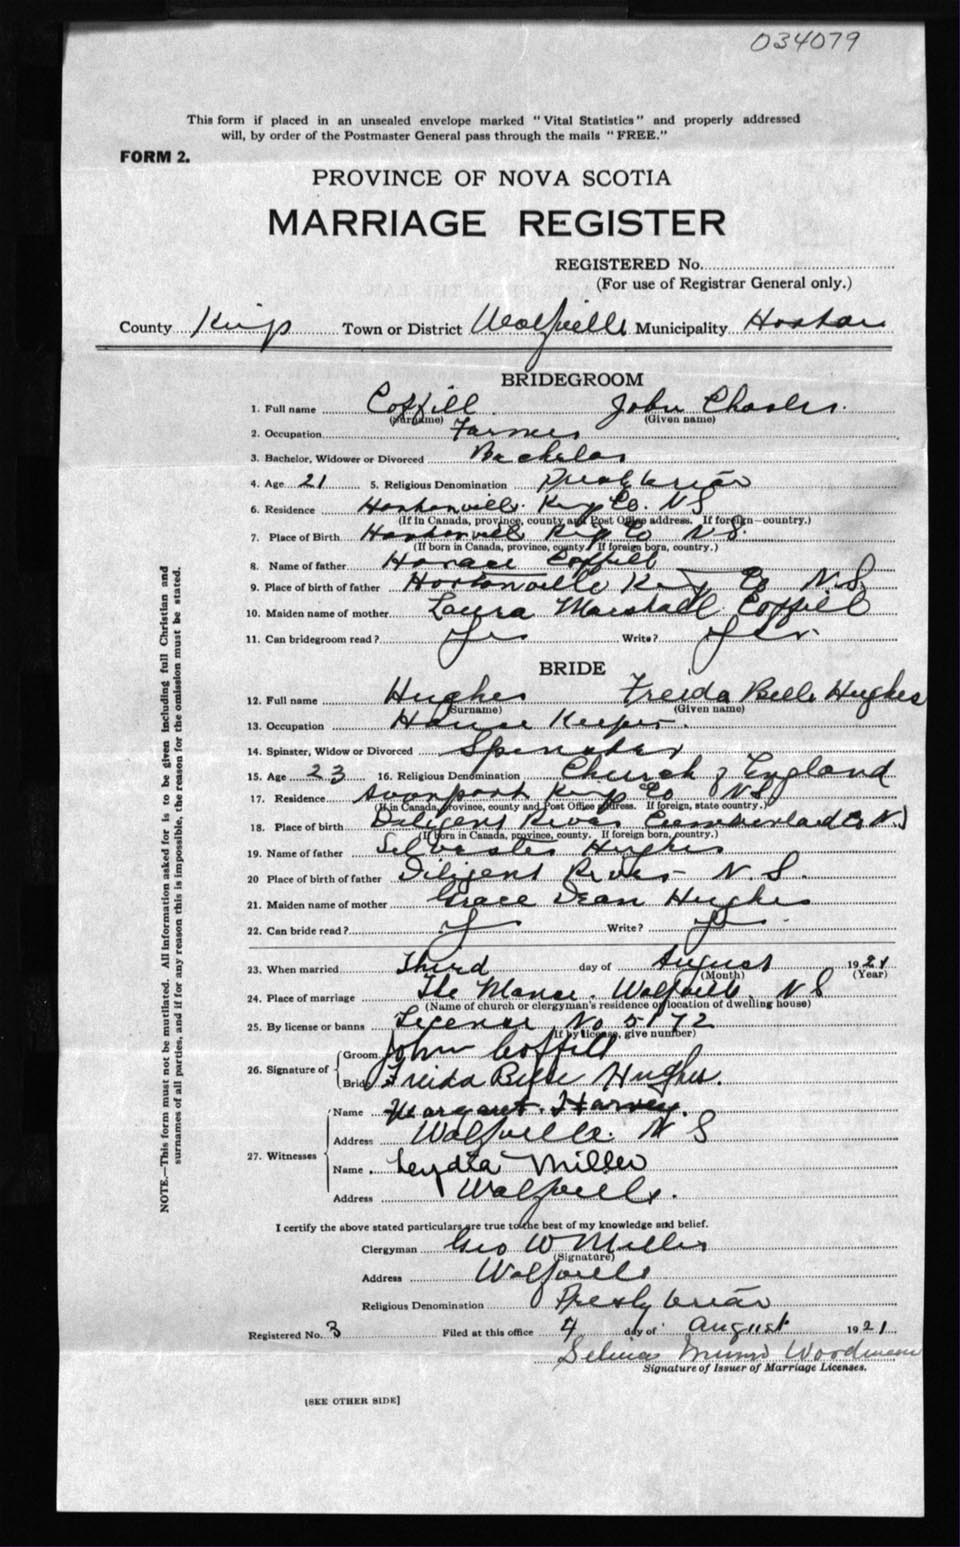 034079
This form if placed in an unsealed envelope marked "Vital Statistics" and properly addressed
will, by order of the Postmaster General pass through the mails "FREE."
FORM 2.
PROVINCE OF NOVA SCOTIA
MARRIAGE REGISTER
REGISTERED No.
(For use of Registrar General only.)
County Kings Town or District Wolfville Municipality Horton
BRIDEGROOM
1. Full name Coffill John Charles.
(Surname) (Given name)
2. Occupation Farmer
3. Bachelor, Widower or Divorced Bachelor
4. Age 21 5. Religious Denomination Presbyterian
6. Residence Hortonville Kings Co. N S
(If in Canada, province, county and Post Office address. If foreign—country.)
7. Place of Birth Hortonville Kings Co N S.
(If born in Canada, province, county. If foreign born, country.)
8. Name of father Horace Coffill
9. Place of birth of father Hortonville Kings Co N.S.
10. Maiden name of mother Laura Marshall Coffill
11. Can bridegroom read? Yes Write? Yes
BRIDE
12. Full name Hughes Freida Belle Hughes
(Surname) (Given name)
13. Occupation House Keeper.
14. Spinster, Widow or Divorced Spinster
15. Age 23 16. Religious Denomination Church of England
17. Residence Avonport Kings Co N S
(If in Canada, province, county and Post Office address. If foreign, state country.)
18. Place of birth Diligent River Cumberland Co N.S
(If born in Canada, province, county. If foreign born, country.)
19. Name of father Silvester Hughes
20 Place of birth of father Diligent River N. S.
21. Maiden name of mother Grace Dean Hughes
22. Can bride read? Yes Write? Yes
23. When married Third day of August 1921
(Month) (Year)
24. Place of marriage The Manse. Wolfville, N S
(Name of church or clergyman's residence or location of dwelling house)
25. By license or banns License No 5172
(If by license, give number)
26. Signature of Groom John Coffill
Bride Freida Belle Hughes.
27. Witnesses Name Margaret Harvey.
Address Wolfville. N S
Name Lydia Miller
Address Wolfville.
I certify the above stated particulars are true to the best of my knowledge and belief.
Clergyman Geo W Miller
(Signature)
Address Wolfville
Religious Denomination Presbyterian
Registered No. 3 Filed at this office 4 day of August 1921
Selina Munro Woodman
Signature of Issuer of Marriage Licenses.
[SEE OTHER SIDE]
NOTE.—This form must not be mutilated. All information asked for is to be given including full Christian and
surnames of all parties, and if for any reason this is impossible, the reason for the omission must be stated.